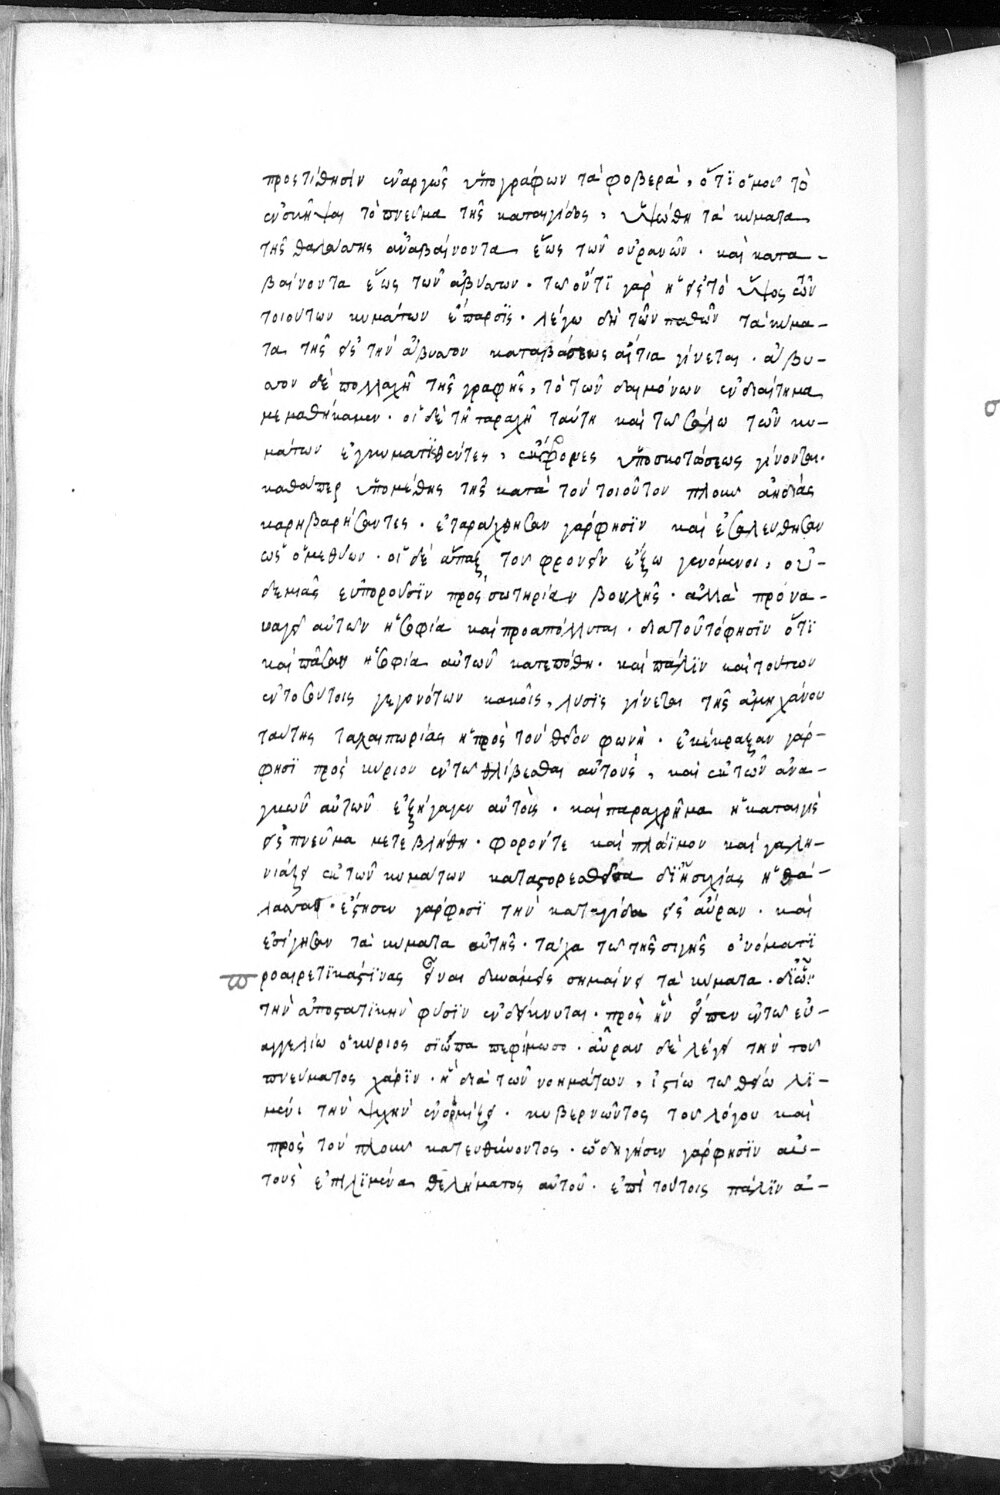 προστίθησιν ἐναργῶς ὑπογράφων τὰ φοβερὰ, ὅτι ὁμοῦ τὸ
ἐνσκῆψαι τὸ πνεῦμα τῆς καταιγίδος, ὑψώθη τὰ κύματα
τῆς θαλάσσης ἀναβαίνοντα ἕως τῶν οὐρανῶν · καὶ κατα-
βαίνοντα ἕως τῶν ἀβύσσων · τοῦτι γὰρ ἡ εἰς τὸ ὕψος τῶν
τοιούτων κυμάτων ἔπαρσις · λέγω δὴ τῶν παθῶν τὰ κύμα-
τα τῆς εἰς τὴν ἄβυσσον καταβάσεως αἴτια γίνεται · ἄβυ-
σσον δὲ πολλαχῆ τῆς γραφῆς, τὸ τῶν δαιμόνων ἐνδιαίτημα
μεμαθήκαμεν · οἱ δὲ τῇ ταραχῇ ταύτῃ καὶ τῷ σάλῳ τῶν κυ-
μάτων ἐγκυματισθέντες, ἔκφορες ὑπὸ σκοτώσεως γίνονται ·
καθάπερ ὑπὸ μέθης τῆς κατὰ τὸν τοιοῦτον πλοῦν ἀηδίας
καρηβαρήσαντες · ἐταράχθησαν γάρ φησιν καὶ ἐσαλεύθησαν
ὡς ὁ μεθύων · οἱ δὲ ἅπαξ τοῦ φρονεῖν ἔξω γενόμενοι, οὐ-
δεμιᾶς εὐποροῦσιν πρὸς σωτηρίαν βουλῆς · ἀλλὰ πρὸ να-
υαγεῖ αὐτῶν ἡ σοφία καὶ προαπόλλυται · διατοῦτό φησιν ὅτι
καὶ πᾶσαν ἡ σοφία αὐτῶν κατεπόθη · καὶ πάλιν καὶ τούτων
ἐν τοσούτοις γεγονότων κακοῖς, λύσις γίνεται τῆς ἀμηχάνου
ταύτης ταλαιπωρίας ἡ πρὸς τὸν θεὸν φωνὴ · ἐκέκραξαν γάρ
φησι πρὸς κύριον ἐν τῷ θλίβεσθαι αὐτοὺς, καὶ ἐκ τῶν ἀνα-
γκῶν αὐτῶν ἐξήγαγεν αὐτοὺς · καὶ παραχρῆμα ἡ καταιγὶς
εἰς πνεῦμα μετεβλήθη · φορόν τε καὶ πλόϊμον καὶ γαλη-
νιάζει ἐκ τῶν κυμάτων καταστορεσθεῖσα δι' ἡσυχίας ἡ θά-
λασσα · ἔστησεν γάρ φησι τὴν καταιγίδα εἰς αὔραν · καὶ
ἐσίγησαν τὰ κύματα αὐτῆς · τάχα τῷ τῆς σιγῆς ὀνόματι
προαιρετικάς τινας εἶναι δυνάμεις σημαίνει τὰ κύματα · δι' ὧν
τὴν ἀποστατικὴν φύσιν ἐνδείκνυται · πρὸς ἣν εἶπεν ἐν τῷ εὐ-
αγγελίῳ ὁ κύριος σιώπα πεφίμωσο · αὔραν δὲ λέγει τὴν τοῦ
πνεύματος χάριν · ἣ διὰ τῶν νοημάτων, ἱστίῳ τῷ θείῳ λι-
μένι τὴν ψυχὴν ἐνορμίζει · κυβερνῶντος τοῦ λόγου καὶ
πρὸς τὸν πλοῦν κατευθύνοντος · ὡδήγησεν γάρ φησιν αὐ-
τοὺς ἐπὶ λιμένα θελήματος αὐτοῦ · ἐπὶ τούτοις πάλιν ἀ-